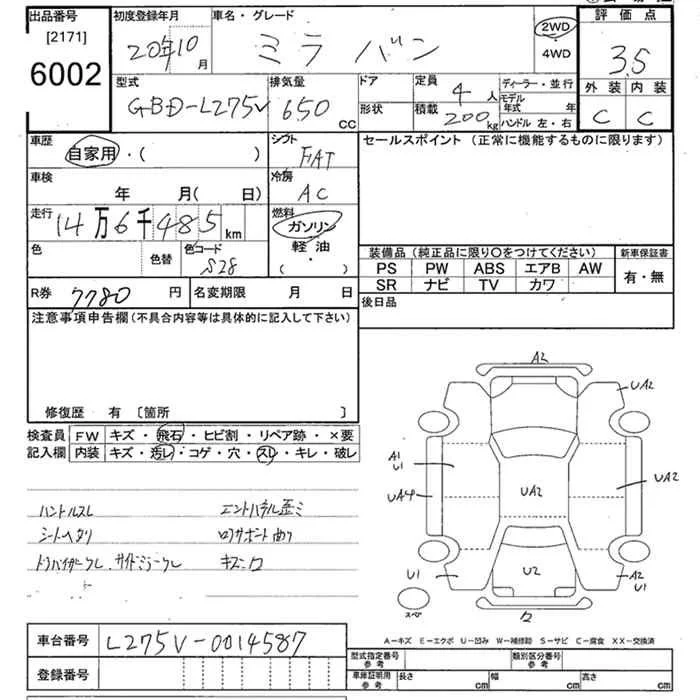 出品番号
[2171]
6002
初度登録年月
20年10月
車名・グレード
ミラ バン
2WD
・
4WD
評価点
3.5
外装 内装
C C
型式
GBD-L275V
排気量
650 cc
ドア
形状
定員
4 人
積載
200 kg
ディーラー・並行
モデル年式 年
ハンドル 左・右
車歴
自家用・( )
シフト
FAT
車検
年 月( 日)
冷房
AC
走行
14万6千485 km
燃料
ガソリン
・
軽油
( ・ )
色
色替
色コード
S28
R券 7780 円
名変期限 月 日
セールスポイント (正常に機能するものに限ります)
装備品 (純正品に限り〇をつけてください)
PS PW ABS エアB AW
SR ナビ TV カワ
新車保証書
有・無
後日品
注意事項申告欄(不具合内容等は具体的に記入して下さい)
修復歴 有 [箇所 ]
検査員
記入欄
FW キズ・飛石・ヒビ割・リペア跡・×要
内装 キズ・汚レ・コゲ・穴・スレ・キレ・破レ
ハンドルスレ
シートヘタリ
ドラバイザークレ、サイドミラークレ
エンドパネル歪ミ
キズ・凹
A2
UA2
A1
U1
UA4
UA2
UA2
U1
U2
A2
U1
スペア
A-キズ E-エクボ U-凹み W-補修跡 S-サビ C-腐食 XX-交換済
車台番号 L275V-0014587
登録番号
型式指定番号
参考
類別区分番号
参考
車庫証明用
参考
長さ cm
幅 cm
高さ cm